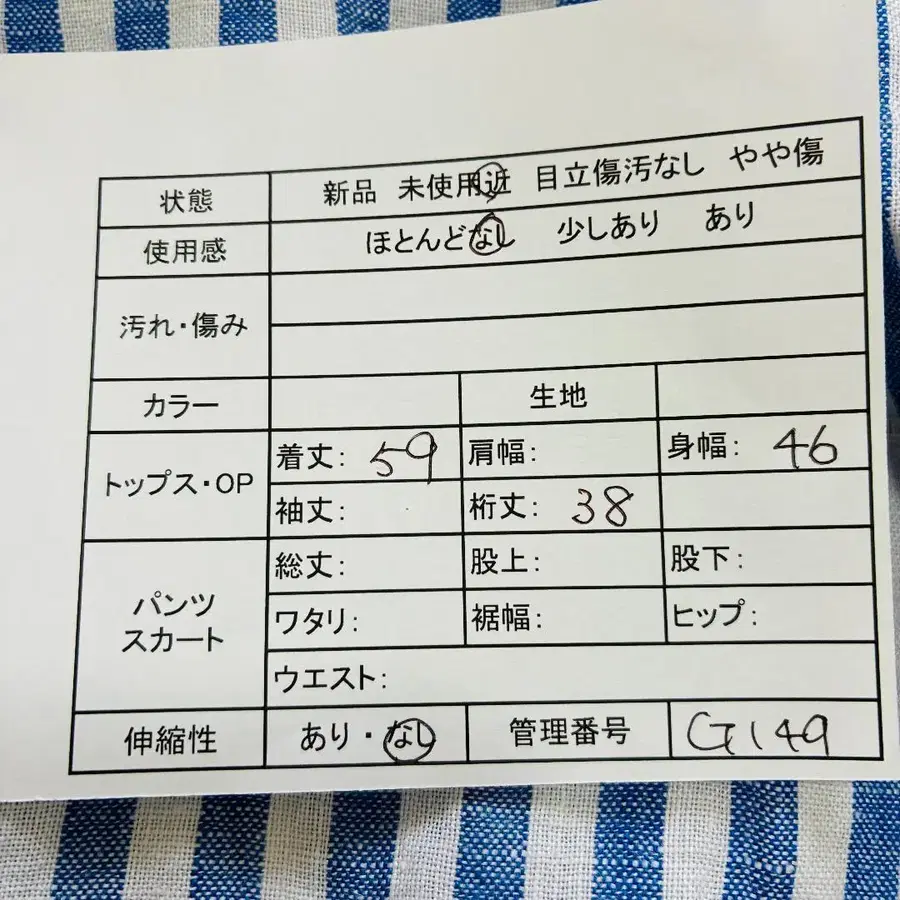 状態 新品 未使用近 目立傷汚なし やや傷
使用感 ほとんどなし 少しあり あり
汚れ・傷み
カラー 生地
トップス・OP 着丈: 59 肩幅: 身幅: 46
袖丈: 裄丈: 38
パンツ スカート 総丈: 股上: 股下:
ワタリ: 裾幅: ヒップ:
ウエスト:
伸縮性 あり・なし 管理番号 G149